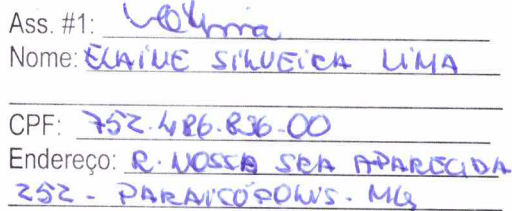 Ass. #1:
Nome: ELAINE SILVEIRA LIMA
CPF: 752.486.836-00
Endereço: R. NOSSA SRA APARECIDA
252 - PARAISÓPOLIS - MG